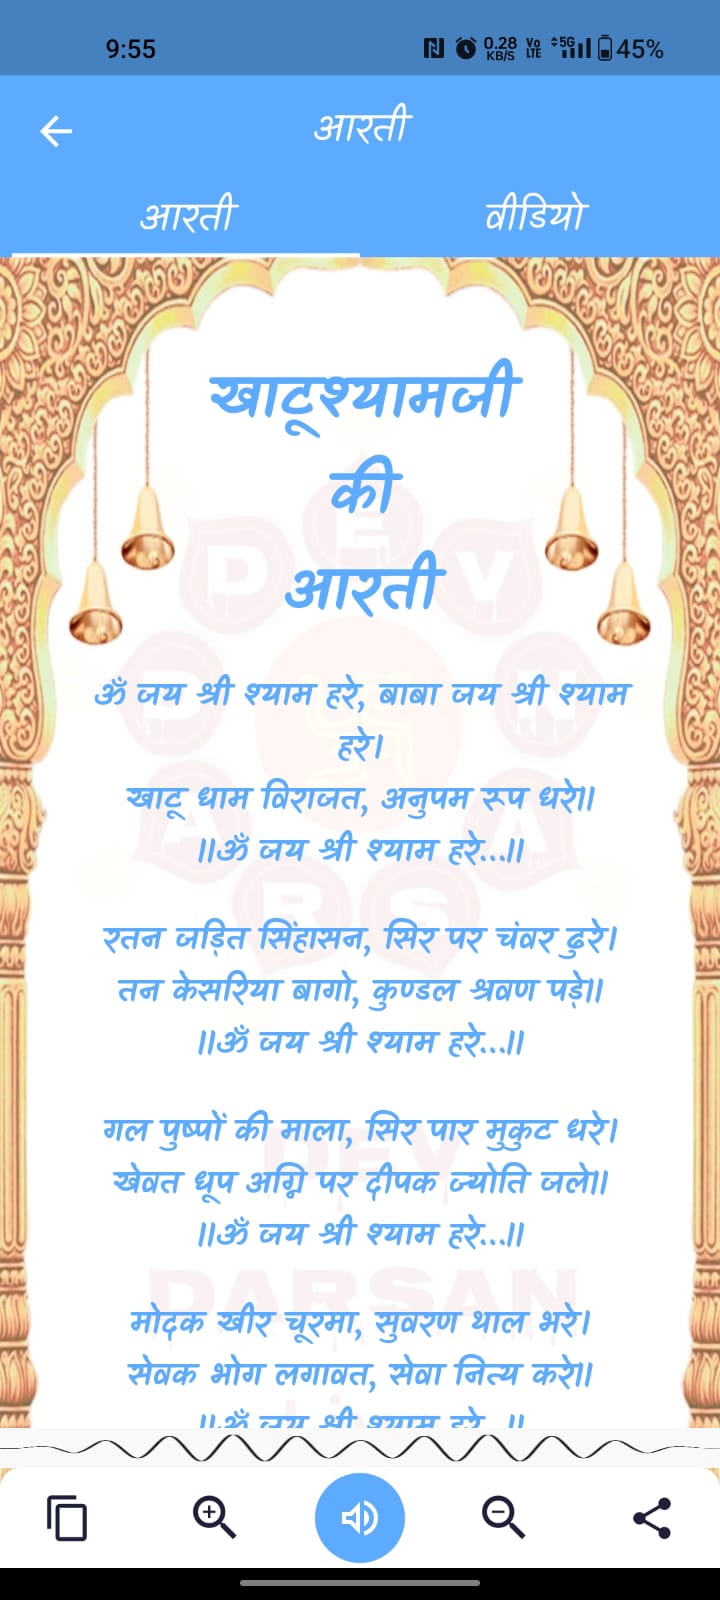 9:55
0.28 KB/S Vo LTE 5G 45%
आरती
आरती वीडियो
खाटूश्यामजी
की
आरती
ॐ जय श्री श्याम हरे, बाबा जय श्री श्याम
हरे।
खाटू धाम विराजत, अनुपम रूप धरे॥
॥ॐ जय श्री श्याम हरे...॥
रतन जड़ित सिंहासन, सिर पर चंवर ढुरे।
तन केसरिया बागो, कुण्डल श्रवण पड़े॥
॥ॐ जय श्री श्याम हरे...॥
गल पुष्पों की माला, सिर पार मुकुट धरे।
खेवत धूप अग्नि पर दीपक ज्योति जले॥
॥ॐ जय श्री श्याम हरे...॥
मोदक खीर चूरमा, सुवरण थाल भरे।
सेवक भोग लगावत, सेवा नित्य करे॥
॥ॐ जय श्री श्याम हरे...॥
DEV
DARSAN